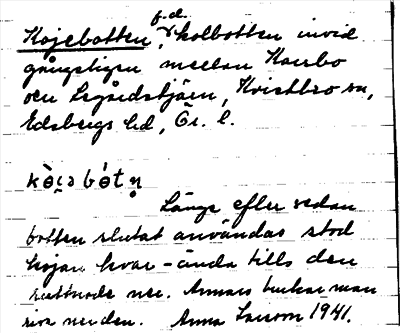 f.d.
Kojebotten, kolbotten invid
gångstigen mellan Karrbo
och Legårdstjärn, Kvistbro sn,
Edsbergs hd, Ör. l.
kò̤jəbòtn̥
Länge efter sedan
botten slutat användas stod
kojan kvar – ända tills den
ruttnade ner. Annars brukar man
riva ner den. Anna Larsson 1941.